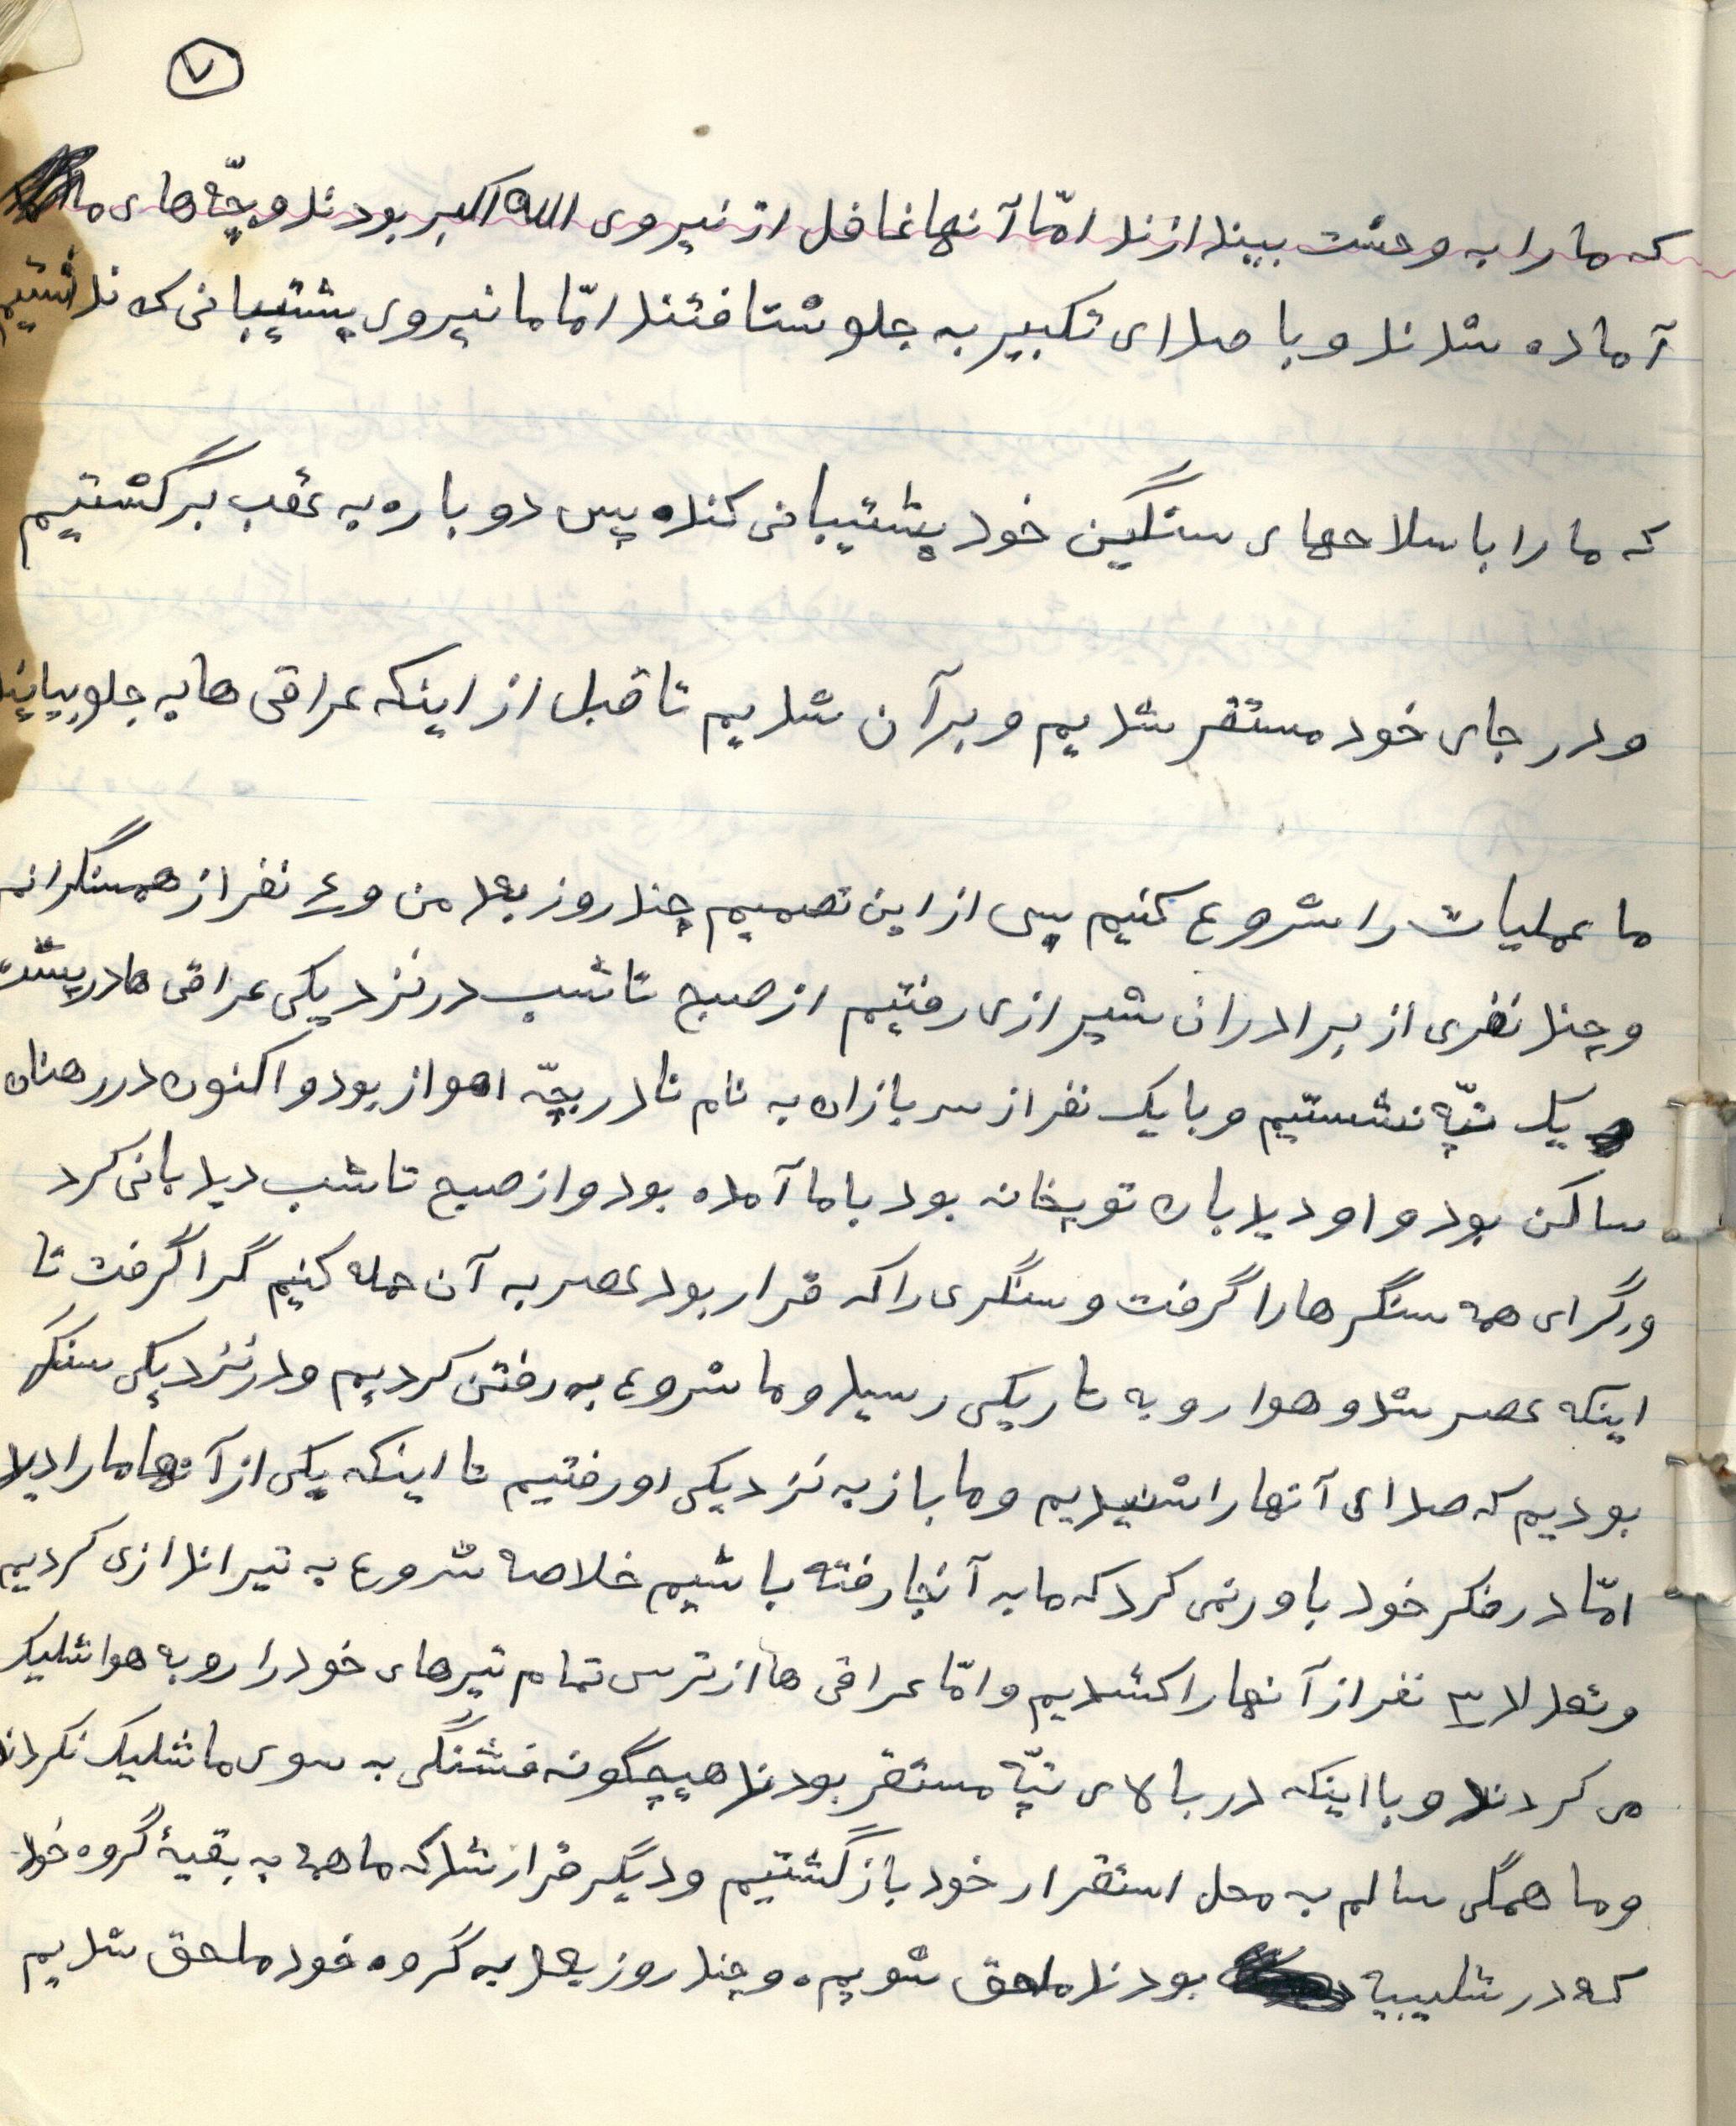 ۷
که ما را به وحشت بیندازند امّا آنها غافل از نیروی الله اکبر بودند و بچّه های ما
آماده شدند و با صدای تکبیر به جلو شتافتند امّا ما نیروی پشتیبانی که نداشتیم
که ما را با سلاحهای سنگین خود پشتیبانی کنده پس دوباره به عقب برگشتیم
و در جای خود مستقر شدیم و بر آن شدیم تا قبل از اینکه عراقی ها به جلو بیایند
ما عملیات را شروع کنیم پس از این تصمیم چند روز بعد من و ۴ نفر از همسنگرانم
و چند نفری از برادران شیرازی رفتیم از صبح تا شب در نزدیکی عراقی ها در پشت
یک تپّه نشستیم و با یک نفر از سربازان به نام نادر بچّه اهواز بود و اکنون در رهنان
ساکن بود و او دیدبان توپخانه بود با ما آمده بود و از صبح تا شب دیدبانی کرد
و گرای همه سنگرها را گرفت و سنگری را که قرار بود عصر به آن حمله کنیم گرا گرفت تا
اینکه عصر شد و هوا رو به تاریکی رسید و ما شروع به رفتن کردیم و در نزدیکی سنگر
بودیم که صدای آنها را شنیدیم و ما باز به نزدیکی او رفتیم تا اینکه یکی از آنها ما را دید
امّا در فکر خود باور نمی کرد که ما به آنجا رفته باشیم خلاصه شروع به تیراندازی کردیم
و تعداد ۳ نفر از آنها را کشتیم و امّا عراقی ها از ترس تمام تیرهای خود را رو به هوا شلیک
می کردند و با اینکه در بالای تپّه مستقر بودند هیچگونه فشنگی به سوی ما شلیک نکردند
و ما همگی سالم به محل استقرار خود بازگشتیم و دیگر قرار شد که ما همه به بقیهٔ گروه خود
که در شلیبیه بودند ملحق شویم. و چند روز بعد به گروه خود ملحق شدیم